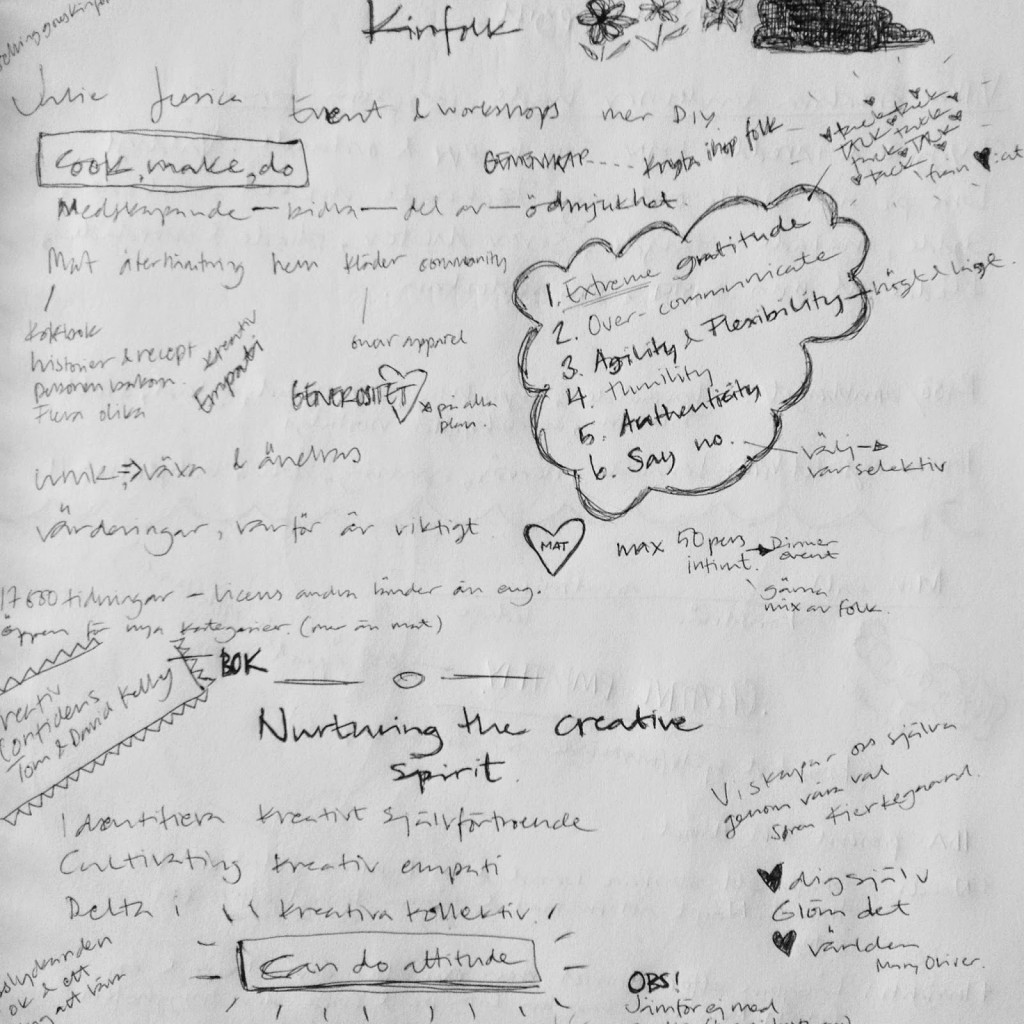 Kinfolk
Julie Jessica
Event & workshops mer DIY
Cook, make, do
GEMENSKAP.... knyta ihop folk
tack tack
TACK tack
tack TACK
tack
från
Medskapande — bidra — del av — ödmjukhet
Mat återhämtning hem kläder community
Kokbok
historier & recept
personen bakom.
Flera olika
Kreativ
Empati
ouur apparel
GENEROSITET
på alla
plan.
1. Extreme gratitude
2. Over-communicate
3. Agility & Flexibility → högt & lågt.
4. Humility
5. Authenticity
6. Say no.
välj →
var selektiv
unik => växa & ändras
värderingar, varför är viktigt
MAT
max 50 pers
intimt.
Dinner
event
gärna
mix av folk.
tidningar – licens andra länder än eng.
Öppen för nya kategorier. (mer än mat)
BOK
Kreativ
Confidens
Tom & David Kelly
Nurturing the creative
spirit.
Identifiera kreativt självförtroende
Cultivating kreativ empati
Delta i kreativa kollektiv.
Can do attitude
Vi skapar oss själva
genom våra val
Sören Kierkegaard.
♥ dig själv
Glöm det
♥ världen
Mary Oliver.
OBS!
Jämför ej med